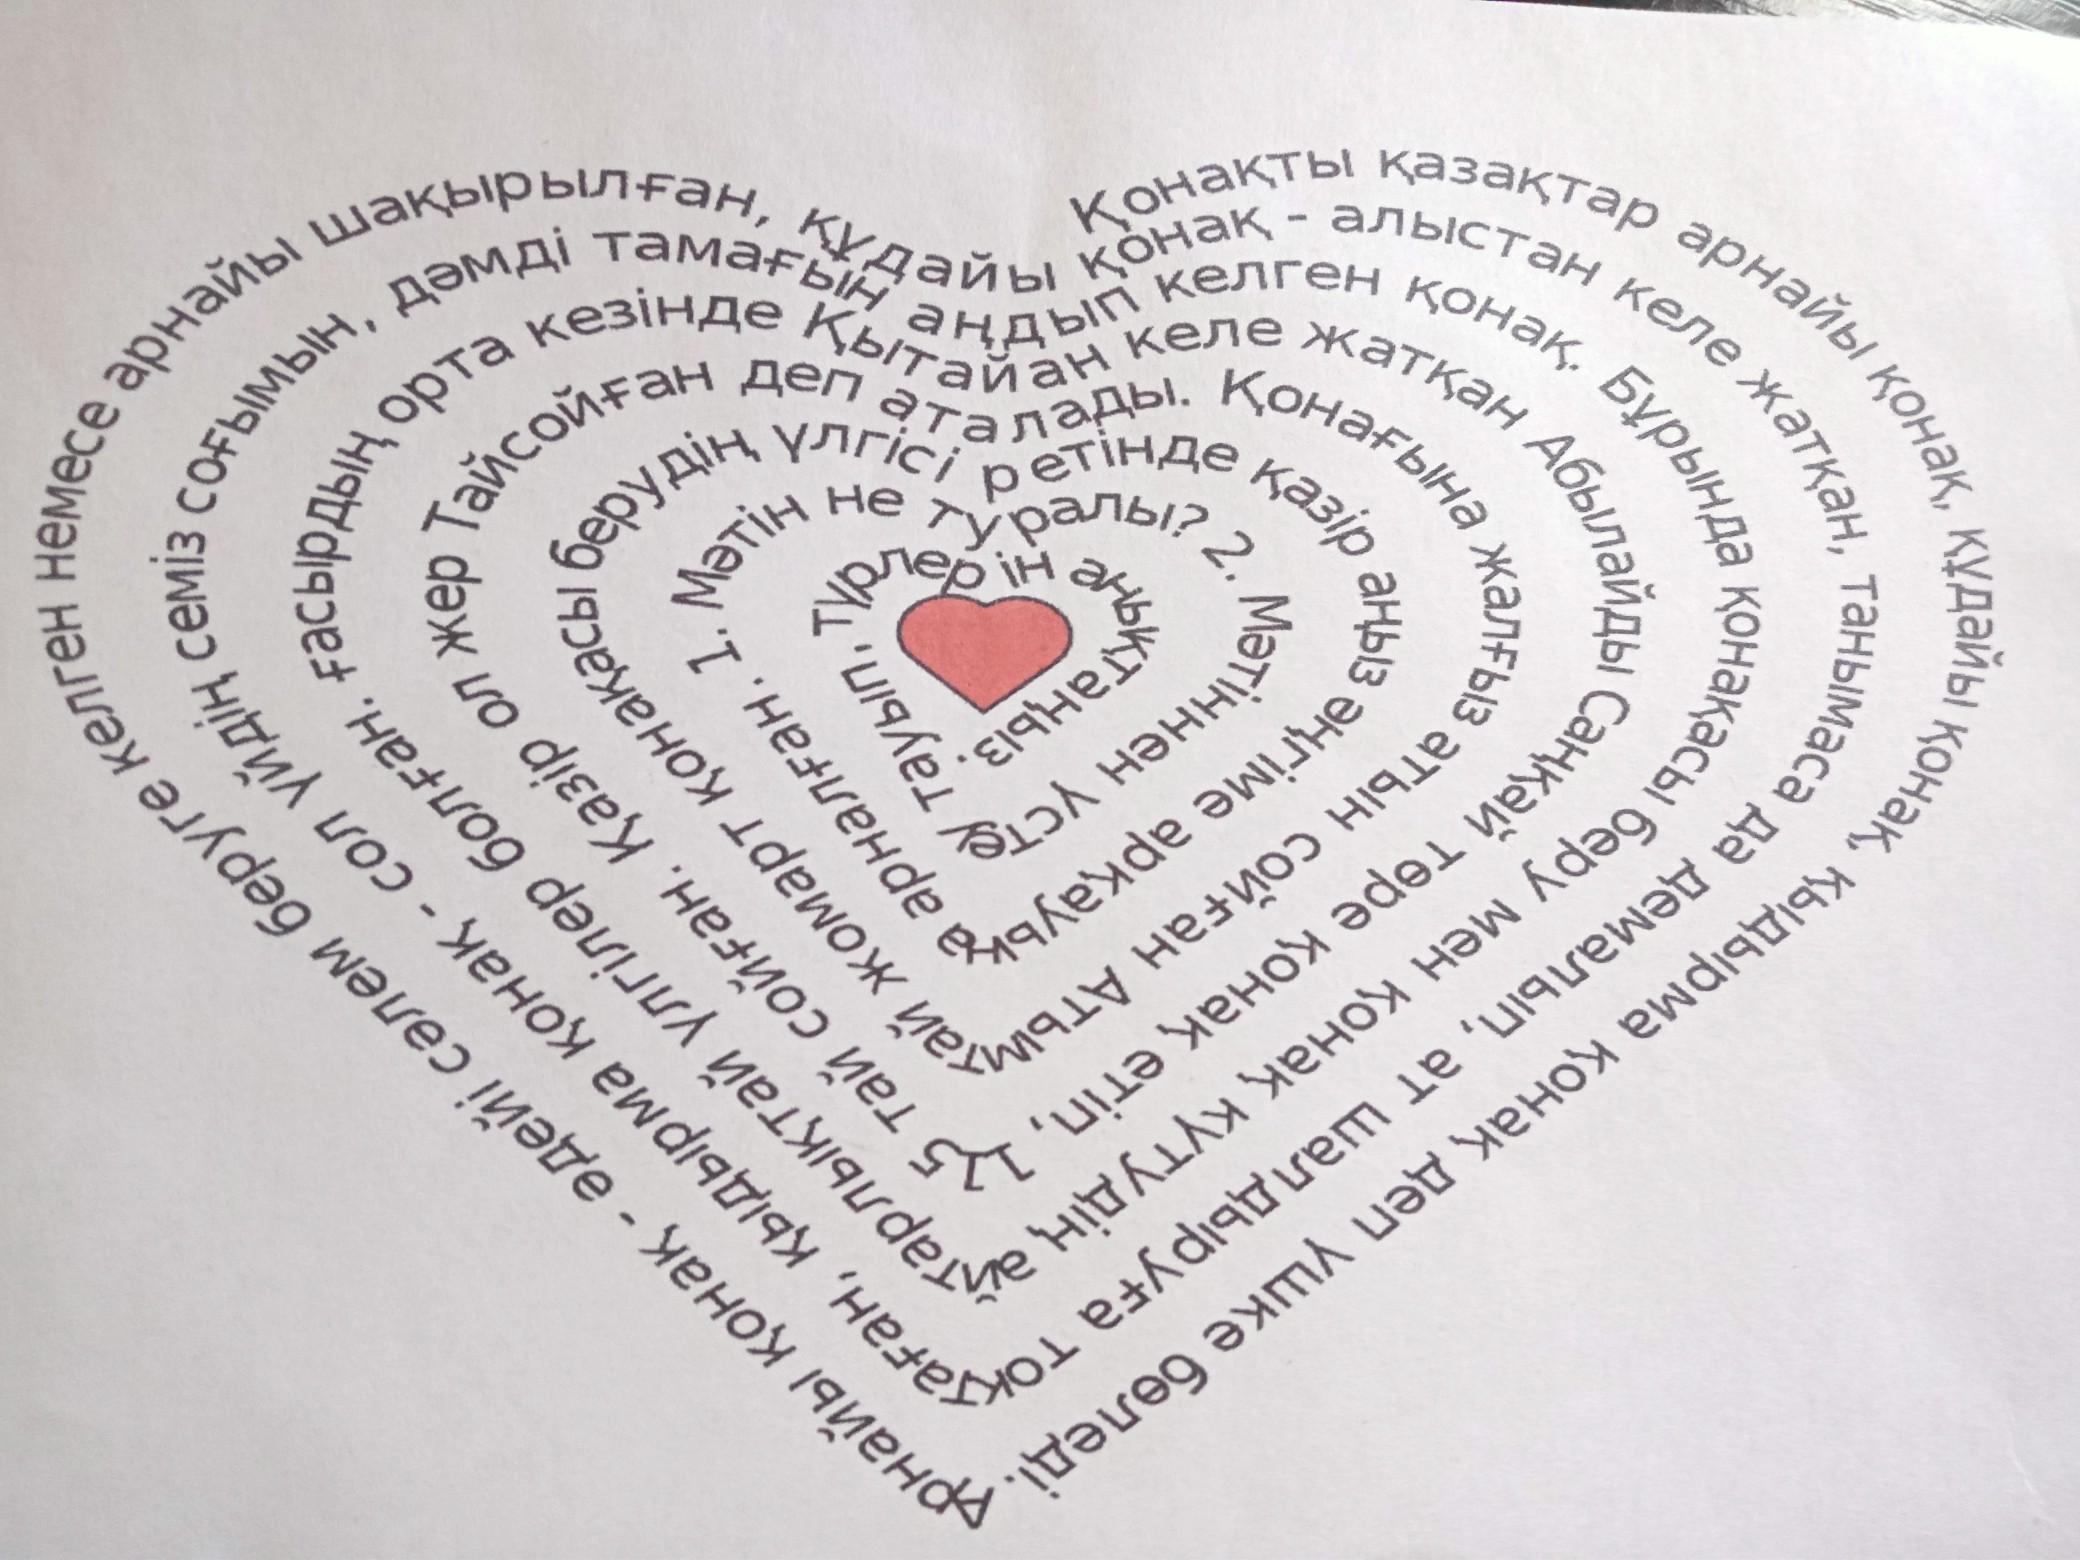 Қонақты қазақтар арнайы қонақ, құдайы қонақ, қыдырма қонақ деп үшке бөледі. Арнайы қонақ - әдейі сәлем беруге келген немесе арнайы шақырылған, құдайы
қонақ - алыстан келе жатқан, танымаса да демалып, ат шалдыруға тоқтаған, қыдырма қонақ - сол үйдің семіз соғымын, дәмді тамағын аңдып
келген қонақ. Бұрында қонақасы беру мен қонақ күтудің айтарлықтай үлгілер болған. ғасырдың орта кезінде Қытайан
келе жатқан Абылайды Саңқай төре қонақ етіп, 15 тай сойған. Қазір ол жер Тайсойған деп аталады.
Қонағына жалғыз атын сойған Атымтай жомарт қонақасы берудің үлгісі ретінде
қазір аңыз әңгіме арқауына арналған. 1. Мәтін не туралы?
2. Мәтіннен үстеу тауып, түрлерін анықтаңыз.